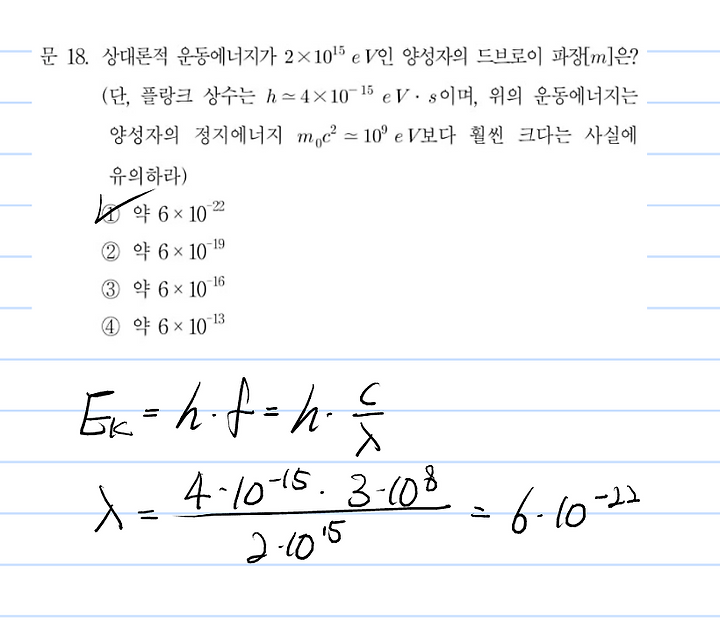 문 18. 상대론적 운동에너지가 2×10¹⁵ eV인 양성자의 드브로이 파장[m]은?
(단, 플랑크 상수는 h≃4×10⁻¹⁵ eV·s이며, 위의 운동에너지는
양성자의 정지에너지 m₀c²≃10⁹ eV보다 훨씬 크다는 사실에
유의하라)
① 약 6×10⁻²²
② 약 6×10⁻¹⁹
③ 약 6×10⁻¹⁶
④ 약 6×10⁻¹³
E_K = h·f = h· c/λ
λ = 4·10⁻¹⁵ · 3·10⁸ / 2·10¹⁵ = 6·10⁻²²